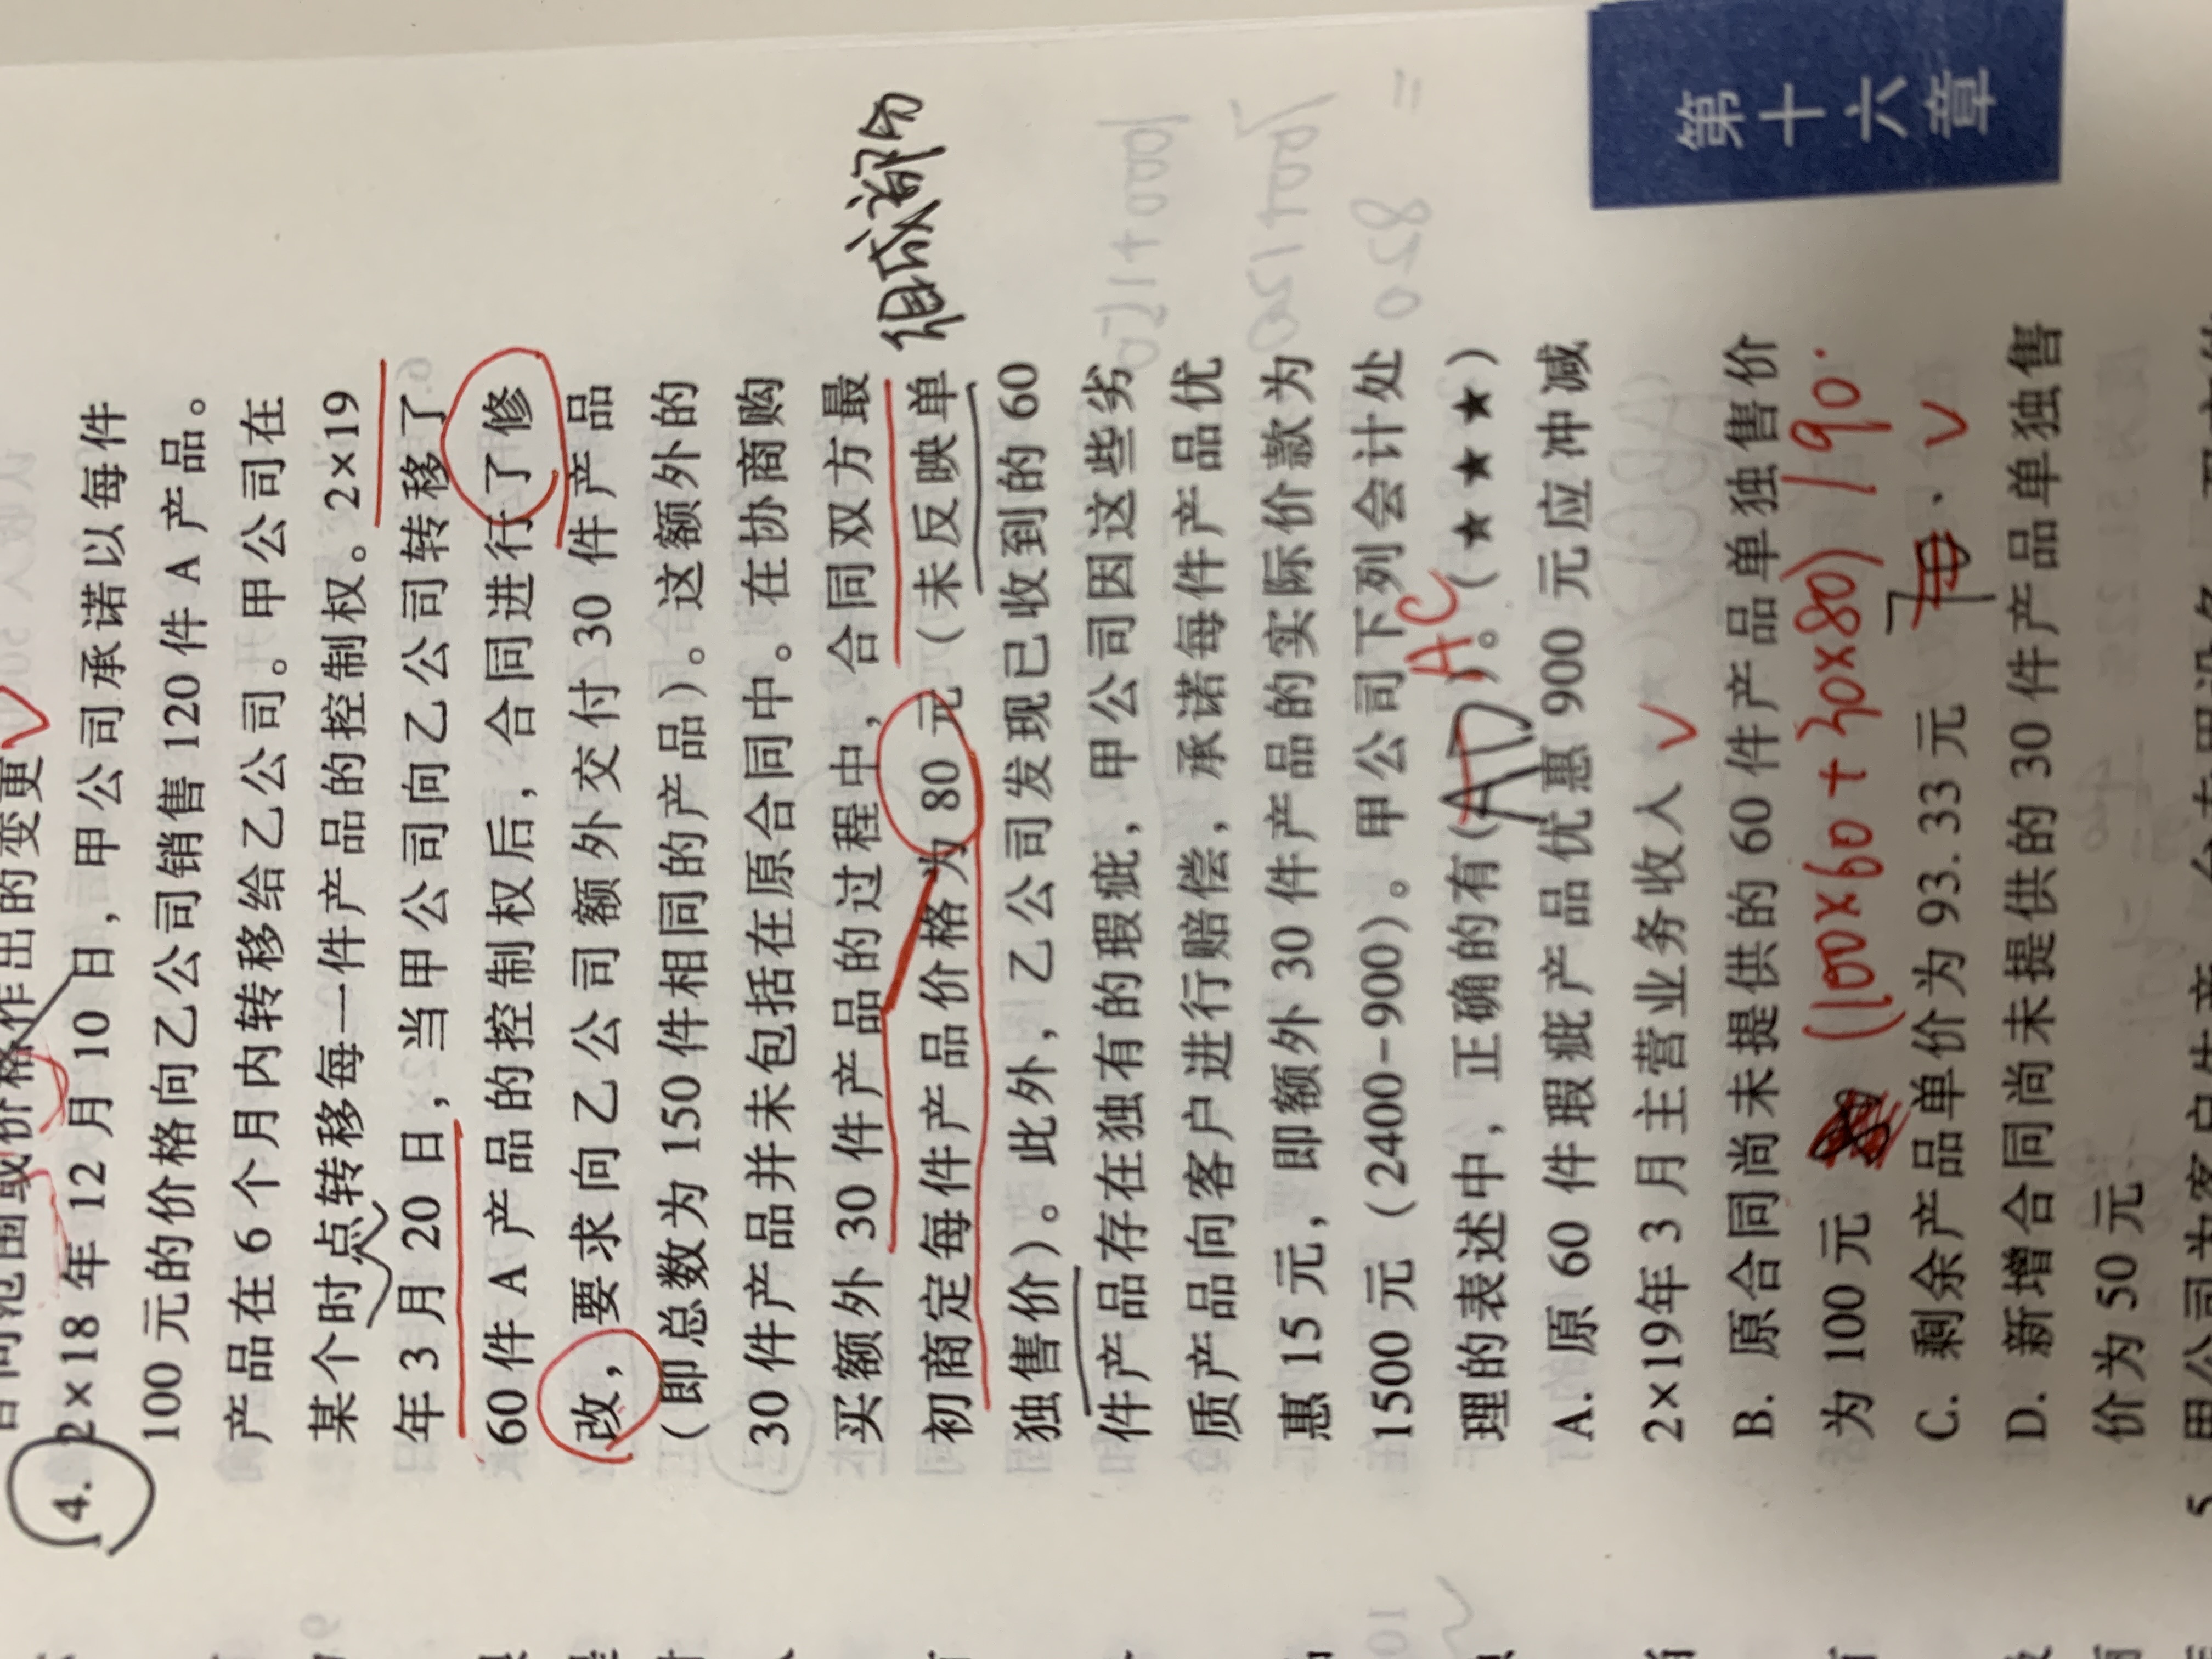 合同范围或价格作出的变更
4. 2×18 年 12 月 10 日，甲公司承诺以每件
100 元的价格向乙公司销售 120 件 A 产品。
产品在 6 个月内转移给乙公司。甲公司在
某个时点转移每一件产品的控制权。2×19
年 3 月 20 日，当甲公司向乙公司转移了
60 件 A 产品的控制权后，合同进行了修
改，要求向乙公司额外交付 30 件产品
（即总数为 150 件相同的产品）。这额外的
30 件产品并未包括在原合同中。在协商购
买额外 30 件产品的过程中，合同双方最
初商定每件产品价格为 80 元（未反映单
组成部分
独售价）。此外，乙公司发现已收到的 60
件产品存在独有的瑕疵，甲公司因这些劣
质产品向客户进行赔偿，承诺每件产品优
惠 15 元，即额外 30 件产品的实际价款为
1500 元（2400-900）。甲公司下列会计处
理的表述中，正确的有（AD）。（★★★）
AC
A. 原 60 件瑕疵产品优惠 900 元应冲减
2×19年 3 月主营业务收入
B. 原合同尚未提供的 60 件产品单独售价
为 100 元
(100×60+30×80)/90.
C. 剩余产品单价为 93. 33 元
D. 新增合同尚未提供的 30 件产品单独售
价为 50 元
第十六章